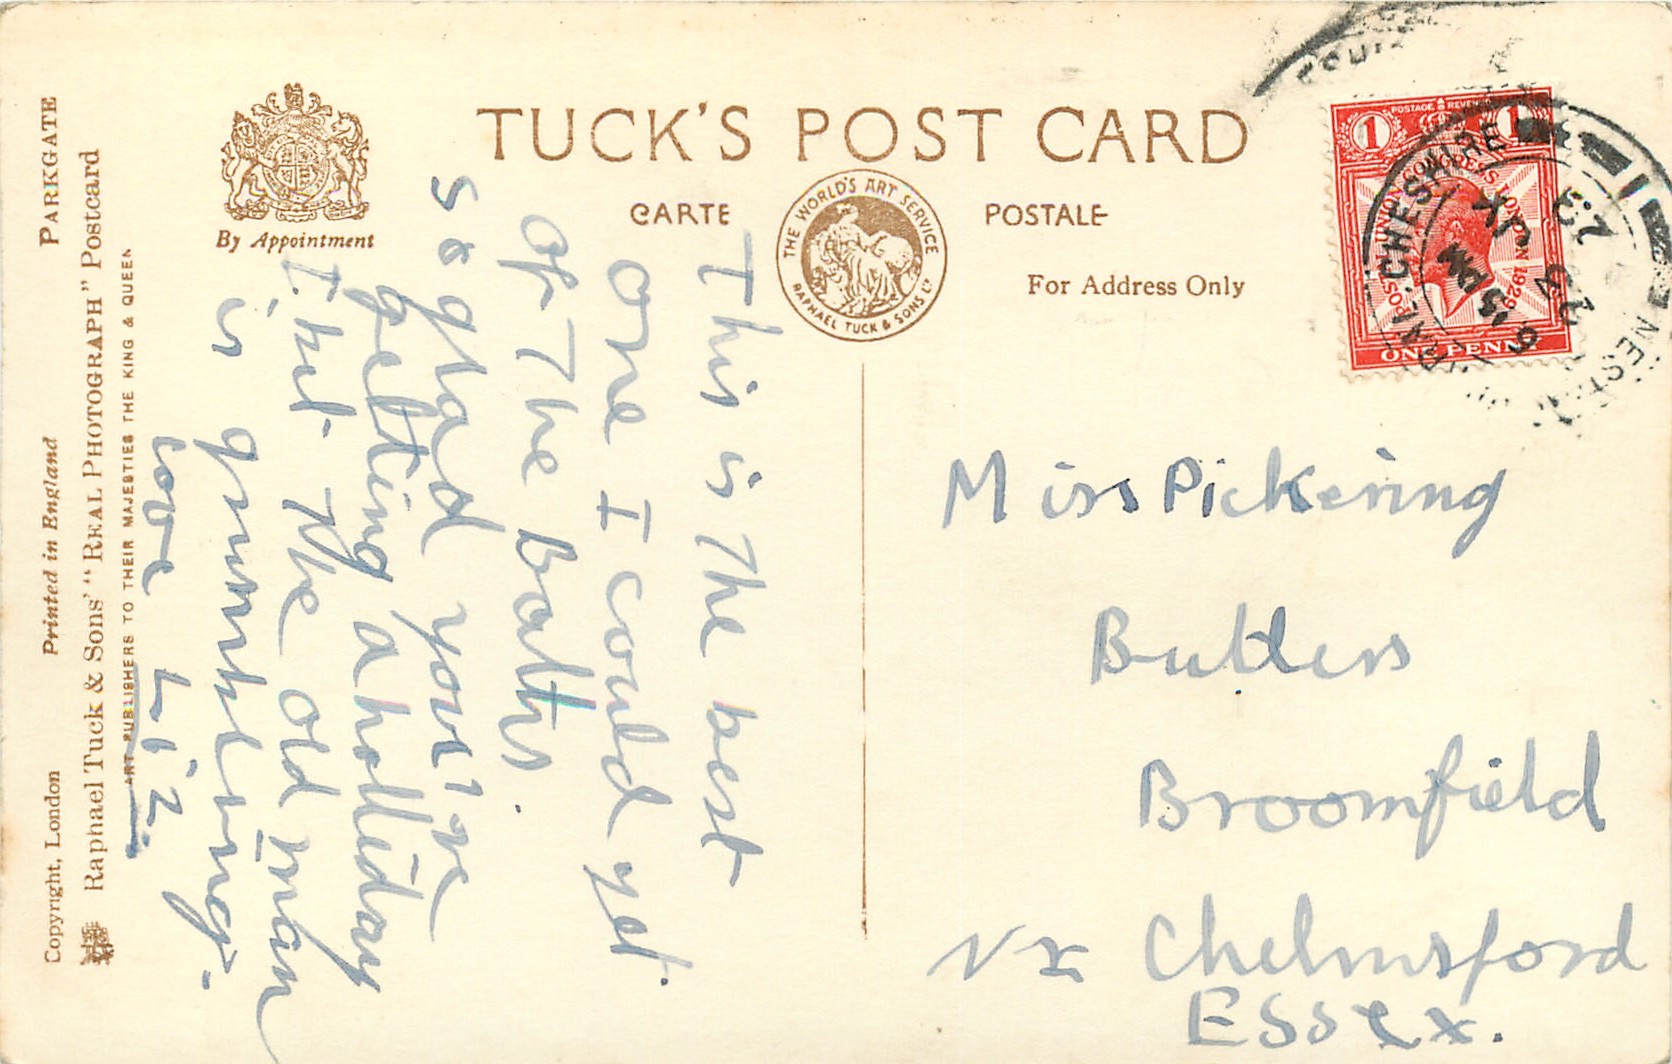 TUCK'S POST CARD
CARTE POSTALE
For Address Only
By Appointment
THE WORLD'S ART SERVICE
RAPHAEL TUCK & SONS LTD
PARKGATE
Printed in England
Copyright, London
Raphael Tuck & Sons' "REAL PHOTOGRAPH" Postcard
ART PUBLISHERS TO THEIR MAJESTIES THE KING & QUEEN
This is the best
one I could get
of the Baths.
So glad you're
getting a holliday
but the old man
is grumbling.
love Liz.
Miss Pickering
Butlers
Broomfield
Nr Chelmsford
Essex.
POSTAGE REVENUE
1 1
POSTAL UNION CONGRESS LONDON 1929
ONE PENNY
CHESHIRE
6 15 PM
NESTON